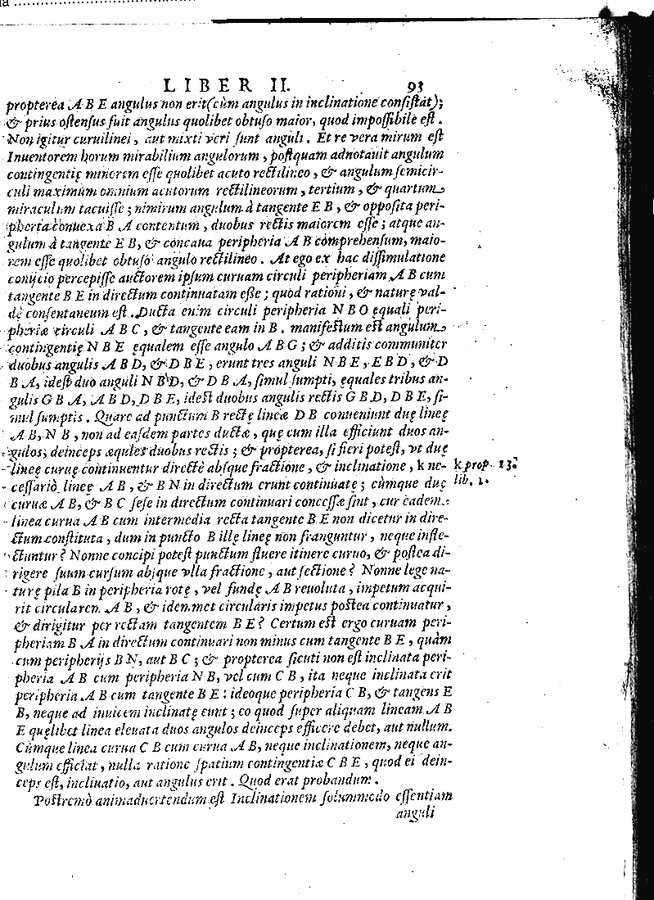 LIBER II. 93
propterea ABE angulus non erit (cùm angulus in inclinatione consistat);
& prius ostensus fuit angulus quolibet obtuso maior, quod impossibile est.
Non igitur curuilinei, aut mixti veri sunt anguli. Et re vera mirum est
Inuentorem horum mirabilium angulorum, postquam adnotauit angulum
contingentię minorem esse quolibet acuto rectilineo, & angulum semicir-
culi maximum omnium acutorum rectilineorum, tertium, & quartum
miraculum tacuisse; nimirum angulum à tangente EB, & opposita peri-
pheria conuexa BA contentum, duobus rectis maiorem esse; atque an-
gulum à tangente EB, & concaua peripheria AB comprehensum, maio-
rem esse quolibet obtuso angulo rectilineo. At ego ex hac dissimulatione
conijcio percepisse auctorem ipsum curuam circuli peripheriam AB cum
tangente BE in directum continuatam esse; quod rationi, & naturę val-
dè consentaneum est. Ducta enim circuli peripheria NBO ęquali peri-
pheriæ circuli ABC, & tangente eam in B. manifestum est angulum
contingentię NBE ęqualem esse angulo ABG; & additis communiter
duobus angulis ABD, & DBE, erunt tres anguli NBE, EBD, & D
BA, idest duo anguli NBD, & DBA, simul sumpti, ęquales tribus an-
gulis GBA, ABD, DBE, idest duobus angulis rectis GBD, DBE, si-
mul sumptis. Quare ad punctum B rectę lineæ DB conueniunt duę lineę
AB, NB, non ad easdem partes ductæ, quę cum illa efficiunt duos an-
gulos, deinceps æqules duobus rectis; & propterea, si fieri potest, vt duę
lineę curuę continuentur directè absque fractione, & inclinatione, k ne-
k prop. 13.
cessariò lineę AB, & BN in directum erunt continuatę; cùmque duę
lib. 1.
curuæ AB, & BC sese in directum continuari concessæ sint, cur eadem
linea curua AB cum intermedia recta tangente BE non dicetur in dire-
ctum constituta, dum in puncto B illę lineę non franguntur, neque infle-
ctuntur? Nonne concipi potest punctum fluere itinere curuo, & postea di-
rigere suum cursum absque vlla fractione, aut sectione? Nonne lege na-
turę pila B in peripheria rotę, vel fundę AB reuoluta, impetum acqui-
rit circularem AB, & idemmet circularis impetus postea continuatur,
& dirigitur per rectam tangentem BE? Certum est ergo curuam peri-
pheriam BA in directum continuari non minus cum tangente BE, quàm
cum peripherijs BN, aut BC; & propterea sicuti non est inclinata peri-
pheria AB cum peripheria NB, vel cum CB, ita neque inclinata erit
peripheria AB cum tangente BE: ideoque peripheria CB, & tangens E
B, neque ad inuicem inclinatę erunt; eo quod super aliquam lineam AB
E quęlibet linea eleuata duos angulos deinceps efficere debet, aut nullum.
Cùmque linea curua CB cum curua AB, neque inclinationem, neque an-
gulum efficiat, nulla ratione spatium contingentiæ CBE, quod ei dein-
ceps est, inclinatio, aut angulus erit. Quod erat probandum.
Postremò animaduertendum est Inclinationem solummodo essentiam
anguli